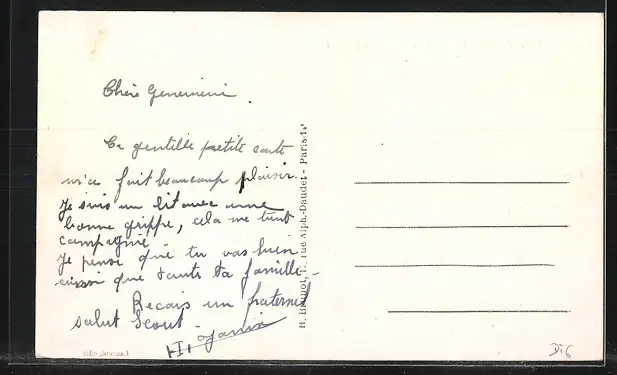 Chère Geneviève.
Ta gentille petite carte
m'a fait beaucoup plaisir.
Je suis au lit avec une
bonne grippe, cela me tient
compagnie.
Je pense que tu vas bien
ainsi que toute ta famille.
Reçois un fraternel
salut Scout -
H. 1, rue Alph.-Daudet - Paris-14e